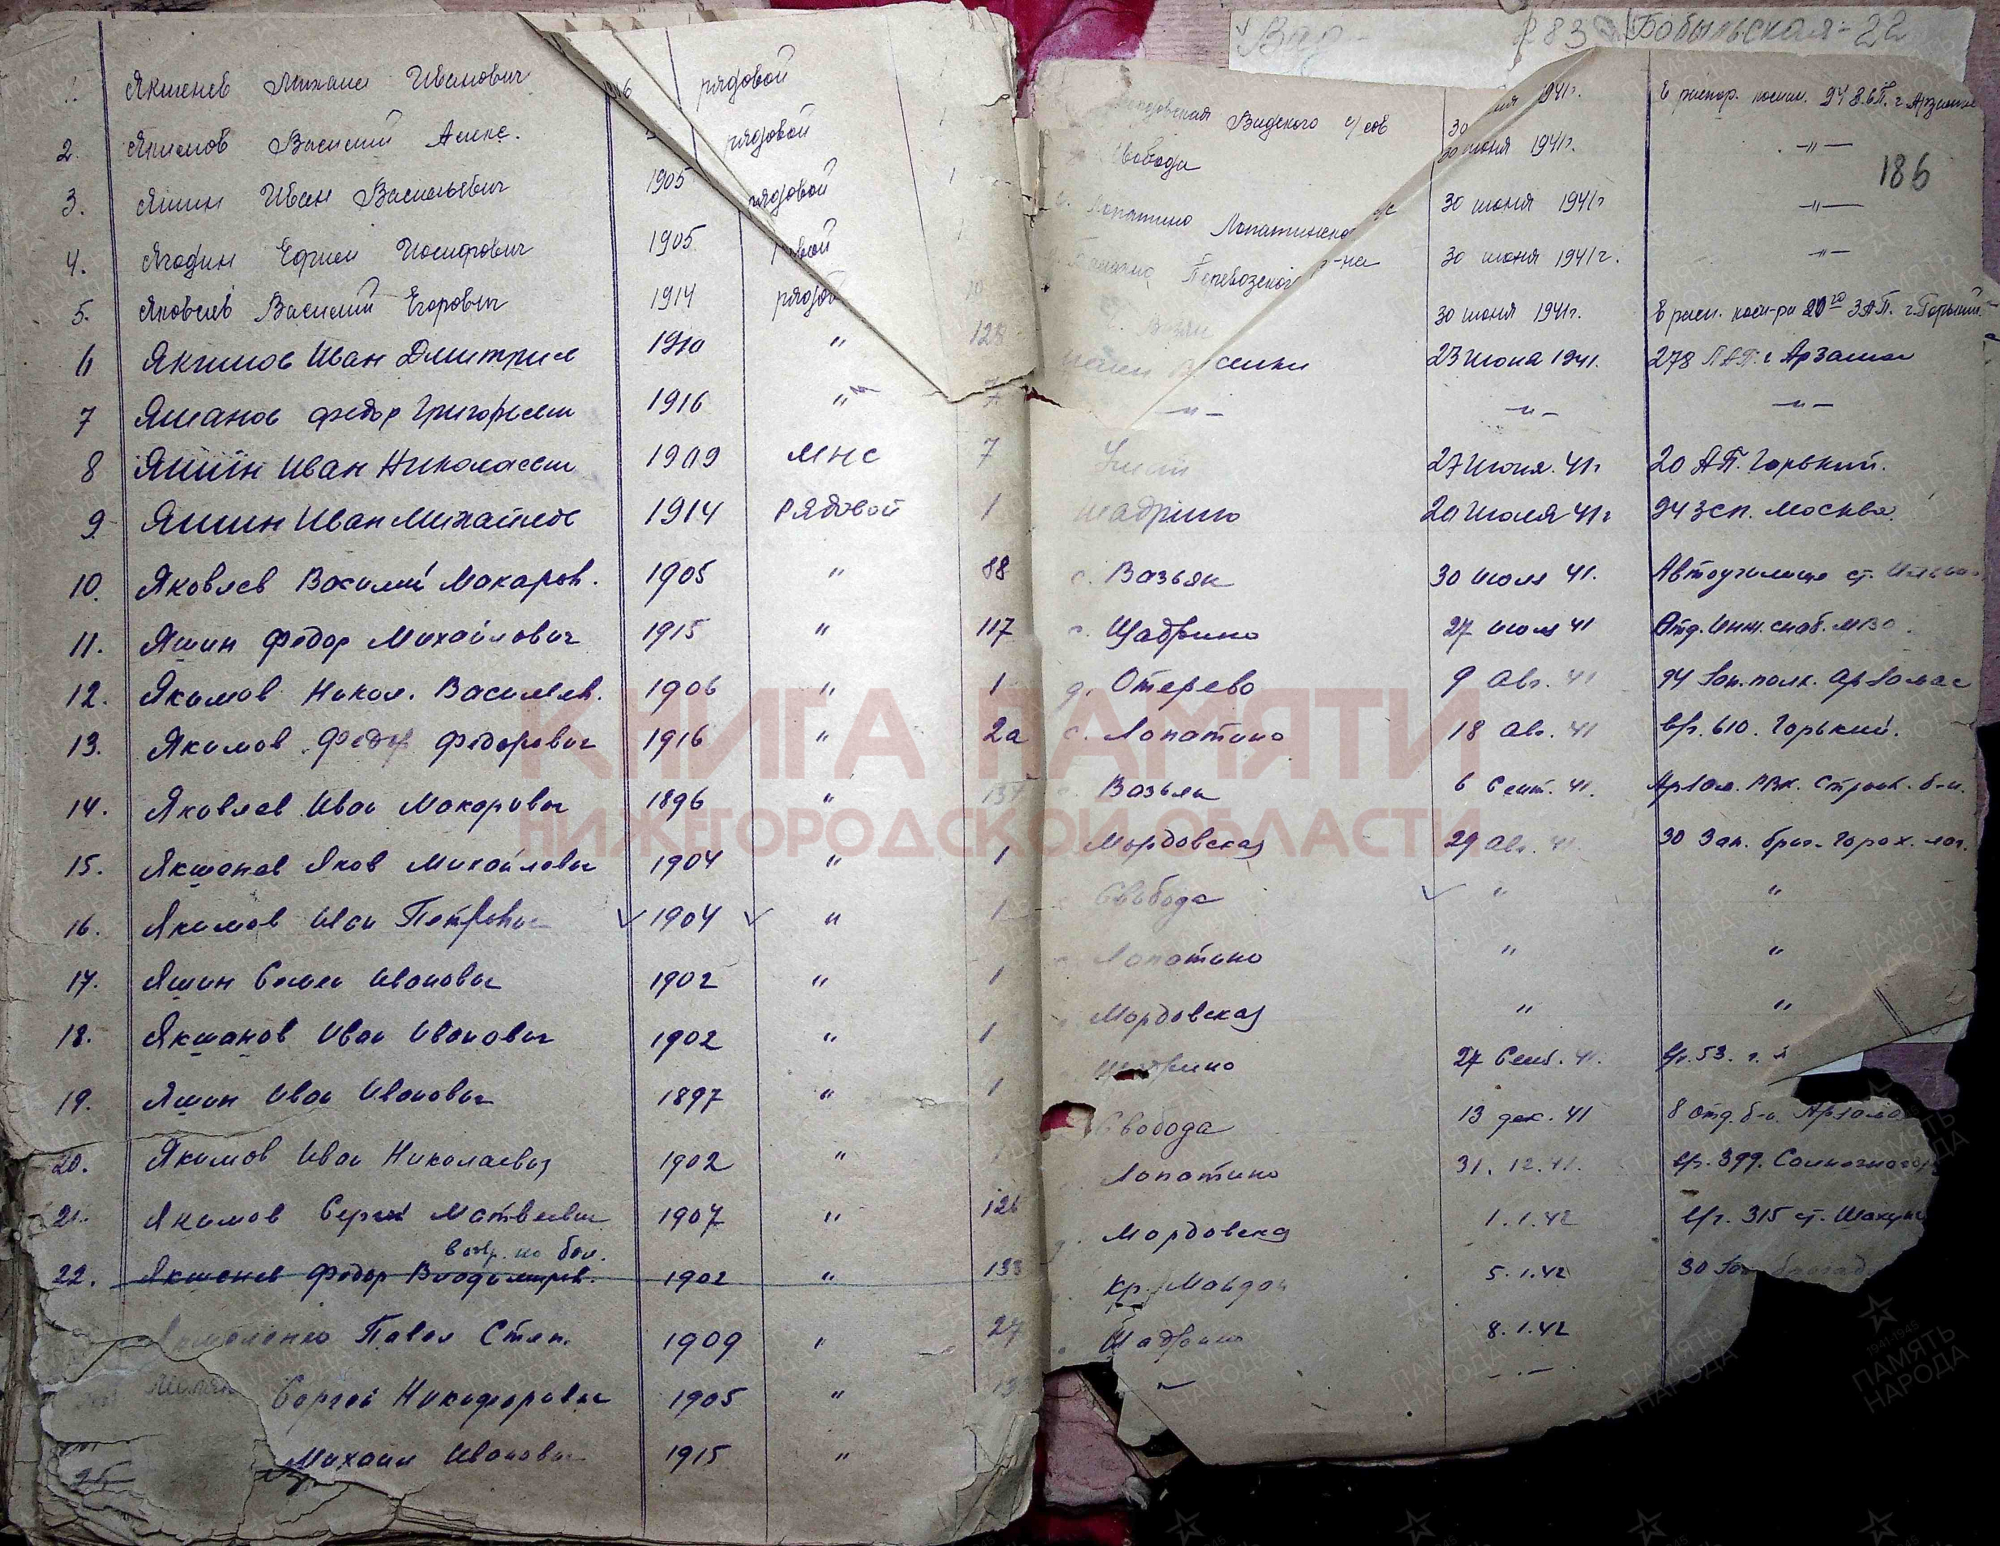 283 Бобыльская-22
186
1. Якшенев Михаил Иванович рядовой Видского с/сов 1941г. в распор. г. Арзамас
2. Якимов Василий Алекс. рядовой Свобода 30 июня 1941г. -"-
3. Яшин Иван Васильевич 1905 рядовой 1 с. Лопатино 30 июня 1941г -"-
4. Ягодин Ефрем Иосифович 1905 Перевозского р-на 30 июня 1941г. -"-
5. Яковлев Василий Егорович 1914 30 июня 1941г. в расп. 20го ЗАП. г. Горький
6 Якимов Иван Дмитрие 1910 " 128 23 июня 1941. 278 г Арзамас
7 Яшанов Федор Григорьеви 1916 " 7 -"- -"- -"-
8 Яшин Иван Николаеви 1909 МНС 7 27 июля. 41г 20 АП. Горький.
9 Яшин Иван Михайлов 1914 Рядовой 1 Шадрино 20 июля 41г 94 ЗСП. Москва.
10. Яковлев Василий Макаров. 1905 " 88 с. Вазьян 30 июля 41. Автоучилище ст.
11. Яшин Федор Михайлович 1915 " 117 с. Шадрино 27 июля 41 Отд. инж. снаб. МВО.
12. Якимов Никол. Василев. 1906 " 1 д. Отерево 9 Авг. 41 94 Зап. полк. Арзамас
13. Якимов Федор Федорович 1916 " 2а с. Лопатино 18 Авг. 41 в/ч. 610. Горький.
14. Яковлев Иван Макарович 1896 " 137 Вазьян 6 Сент. 41. Арзам. РВК. Строит. б-н.
15. Якшанов Яков Михайлович 1904 " 1 Мордовская 29 Авг. 41. 30 Зап. бриг. Горох. лаг.
16. Якимов Иван Петрович 1904 " 1 Свобода " "
17. Яшин Семен Иванович 1902 " 1 Лопатино " "
18. Якшанов Иван Иванович 1902 " 1 Мордовская " "
19. Яшин Иван Иванович 1897 " 1 Шадрино 27 Сент. 41. в/ч. 53. г.
20. Якимов Иван Николаевич 1902 " Свобода 13 дек. 41 8 отд. б-н. Арзама
21. Якимов Сергей Матвеевич 1907 " 126 Лопатино 31. 12. 41. в/ч. 399. Солнечногор
возвр. по бол.
22. Якшенев Федор Владимиров. 1902 " 133 Мордовска 1.1.42 в/ч. 315 ст. Шахунь
Павел Степ. 1909 " 27 Кр. Майдан 5.1.42 30 Зап. бригад
Сергей Никифорович 1905 " 13 Шадрино 8.1.42
25 Михаил Иванович 1915 " - " -
КНИГА ПАМЯТИ
НИЖЕГОРОДСКОЙ ОБЛАСТИ
ПАМЯТЬ НАРОДА